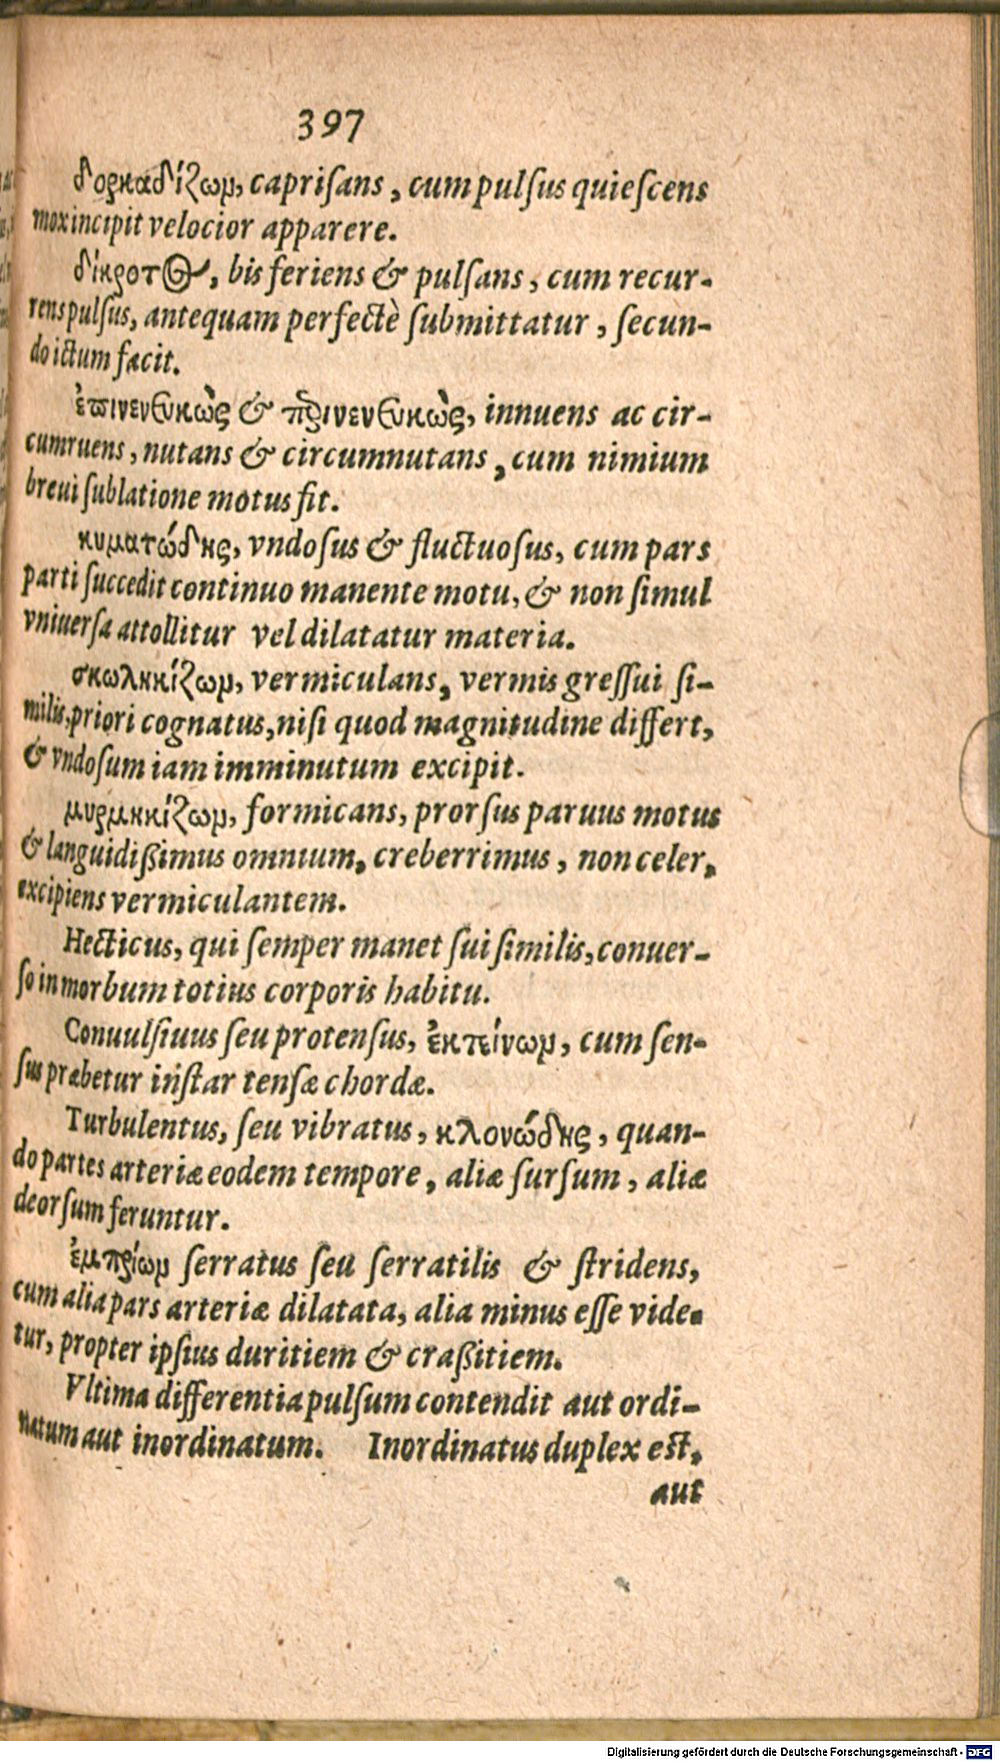 397
δορκαδίζωμ, capriſans, cum pulſus quieſcens
mox incipit velocior apparere.
δίκροτος, bis feriens & pulſans, cum recur-
rens pulſus, antequam perfectè ſubmittatur, ſecun-
do ictum facit.
ἐπινενευκὼς & περινενευκὼς, innuens ac cir-
cumruens, nutans & circumnutans, cum nimium
breui ſublatione motus fit.
κυματώδης, vndoſus & fluctuoſus, cum pars
parti ſuccedit continuo manente motu, & non ſimul
vniuerſa attollitur vel dilatatur materia.
σκωληκίζωμ, vermiculans, vermis greſſui ſi-
milis, priori cognatus, niſi quod magnitudine differt,
& vndoſum iam imminutum excipit.
μυρμηκίζωμ, formicans, prorſus paruus motus
& languidißimus omnium, creberrimus, non celer,
excipiens vermiculantem.
Hecticus, qui ſemper manet ſui ſimilis, conuer-
ſo in morbum totius corporis habitu.
Conuulſiuus ſeu protenſus, ἐκτείνωμ, cum ſen-
ſus præbetur inſtar tenſæ chordæ.
Turbulentus, ſeu vibratus, κλονώδης, quan-
do partes arteriæ eodem tempore, aliæ ſurſum, aliæ
deorſum feruntur.
ἐμπρίωμ ſerratus ſeu ſerratilis & ſtridens,
cum alia pars arteriæ dilatata, alia minus eſſe vide-
tur, propter ipſius duritiem & craßitiem.
Vltima differentia pulſum contendit aut ordi-
natum aut inordinatum. Inordinatus duplex eſt,
aut
Digitalisierung gefördert durch die Deutsche Forschungsgemeinschaft - DFG